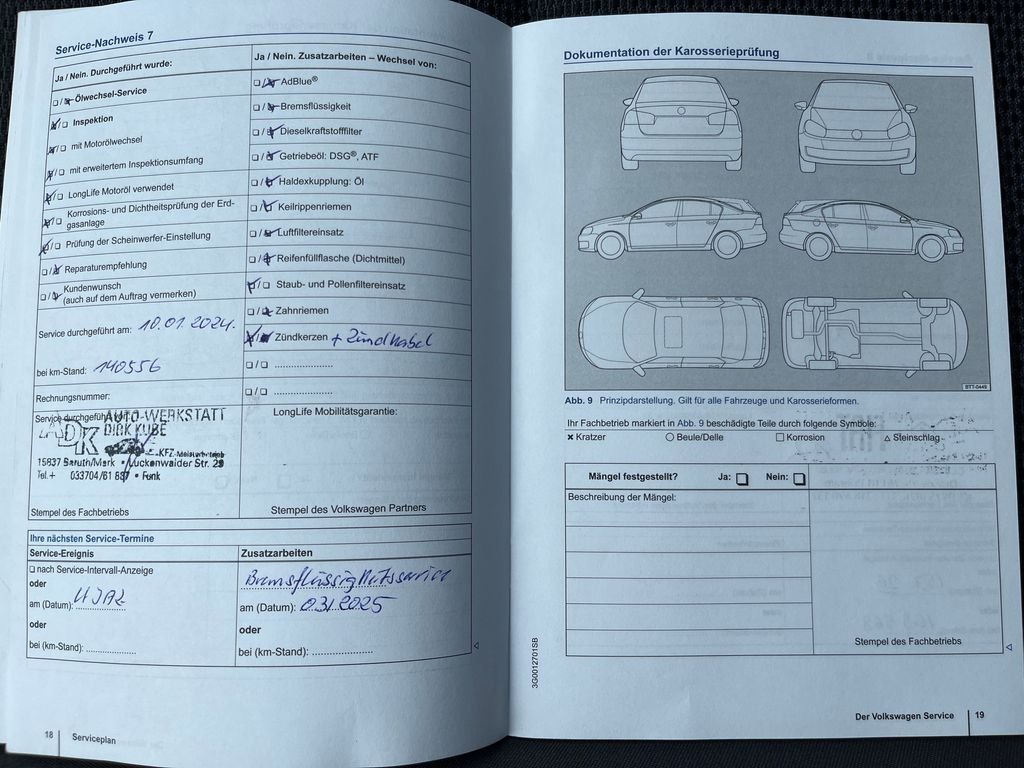 Service-Nachweis 7
Ja / Nein. Durchgeführt wurde:
❏ / ❏ Ölwechsel-Service
❏ / ❏ Inspektion
❏ / ❏ mit Motorölwechsel
❏ / ❏ mit erweitertem Inspektionsumfang
❏ / ❏ LongLife Motoröl verwendet
❏ / ❏ Korrosions- und Dichtheitsprüfung der Erd-
gasanlage
❏ / ❏ Prüfung der Scheinwerfer-Einstellung
❏ / ❏ Reparaturempfehlung
❏ / ❏ Kundenwunsch
(auch auf dem Auftrag vermerken)
Service durchgeführt am: 10.01.2024.
bei km-Stand: 140556
Rechnungsnummer:
Service durchgeführt
ADK AUTO-WERKSTATT
DIRK KUBE
KFZ Meisterbetrieb
15837 Baruth/Mark • Luckenwalder Str. 29
Tel. + 033704/61 887 • Funk
Stempel des Fachbetriebs
Ja / Nein. Zusatzarbeiten – Wechsel von:
❏ / ❏ AdBlue®
❏ / ❏ Bremsflüssigkeit
❏ / ❏ Dieselkraftstofffilter
❏ / ❏ Getriebeöl: DSG®, ATF
❏ / ❏ Haldexkupplung: Öl
❏ / ❏ Keilrippenriemen
❏ / ❏ Luftfiltereinsatz
❏ / ❏ Reifenfüllflasche (Dichtmittel)
❏ / ❏ Staub- und Pollenfiltereinsatz
❏ / ❏ Zahnriemen
❏ / ❏ Zündkerzen + Zündkabel
❏ / ❏ ....................
❏ / ❏ ....................
LongLife Mobilitätsgarantie:
Stempel des Volkswagen Partners
Ihre nächsten Service-Termine
Service-Ereignis
❏ nach Service-Intervall-Anzeige
oder
am (Datum):
oder
bei (km-Stand): ................
Zusatzarbeiten
Bremsflüssigkeitsservice
am (Datum): 03/2025
oder
bei (km-Stand): ...................
18 Serviceplan
Dokumentation der Karosserieprüfung
BTT-0449
Abb. 9 Prinzipdarstellung. Gilt für alle Fahrzeuge und Karosserieformen.
Ihr Fachbetrieb markiert in Abb. 9 beschädigte Teile durch folgende Symbole:
✖ Kratzer ◯ Beule/Delle ☐ Korrosion △ Steinschlag
Mängel festgestellt? Ja: ❏ Nein: ❏
Beschreibung der Mängel:
Stempel des Fachbetriebs
3G0012701SB
Der Volkswagen Service 19